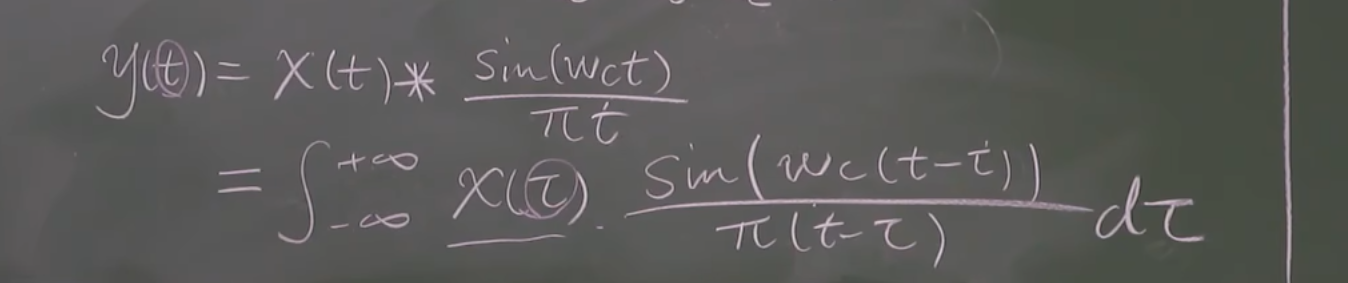 y(t) = x(t) * sin(wct) / πt
= ∫_{-∞}^{+∞} x(τ) · sin(wc(t-τ)) / π(t-τ) dτ